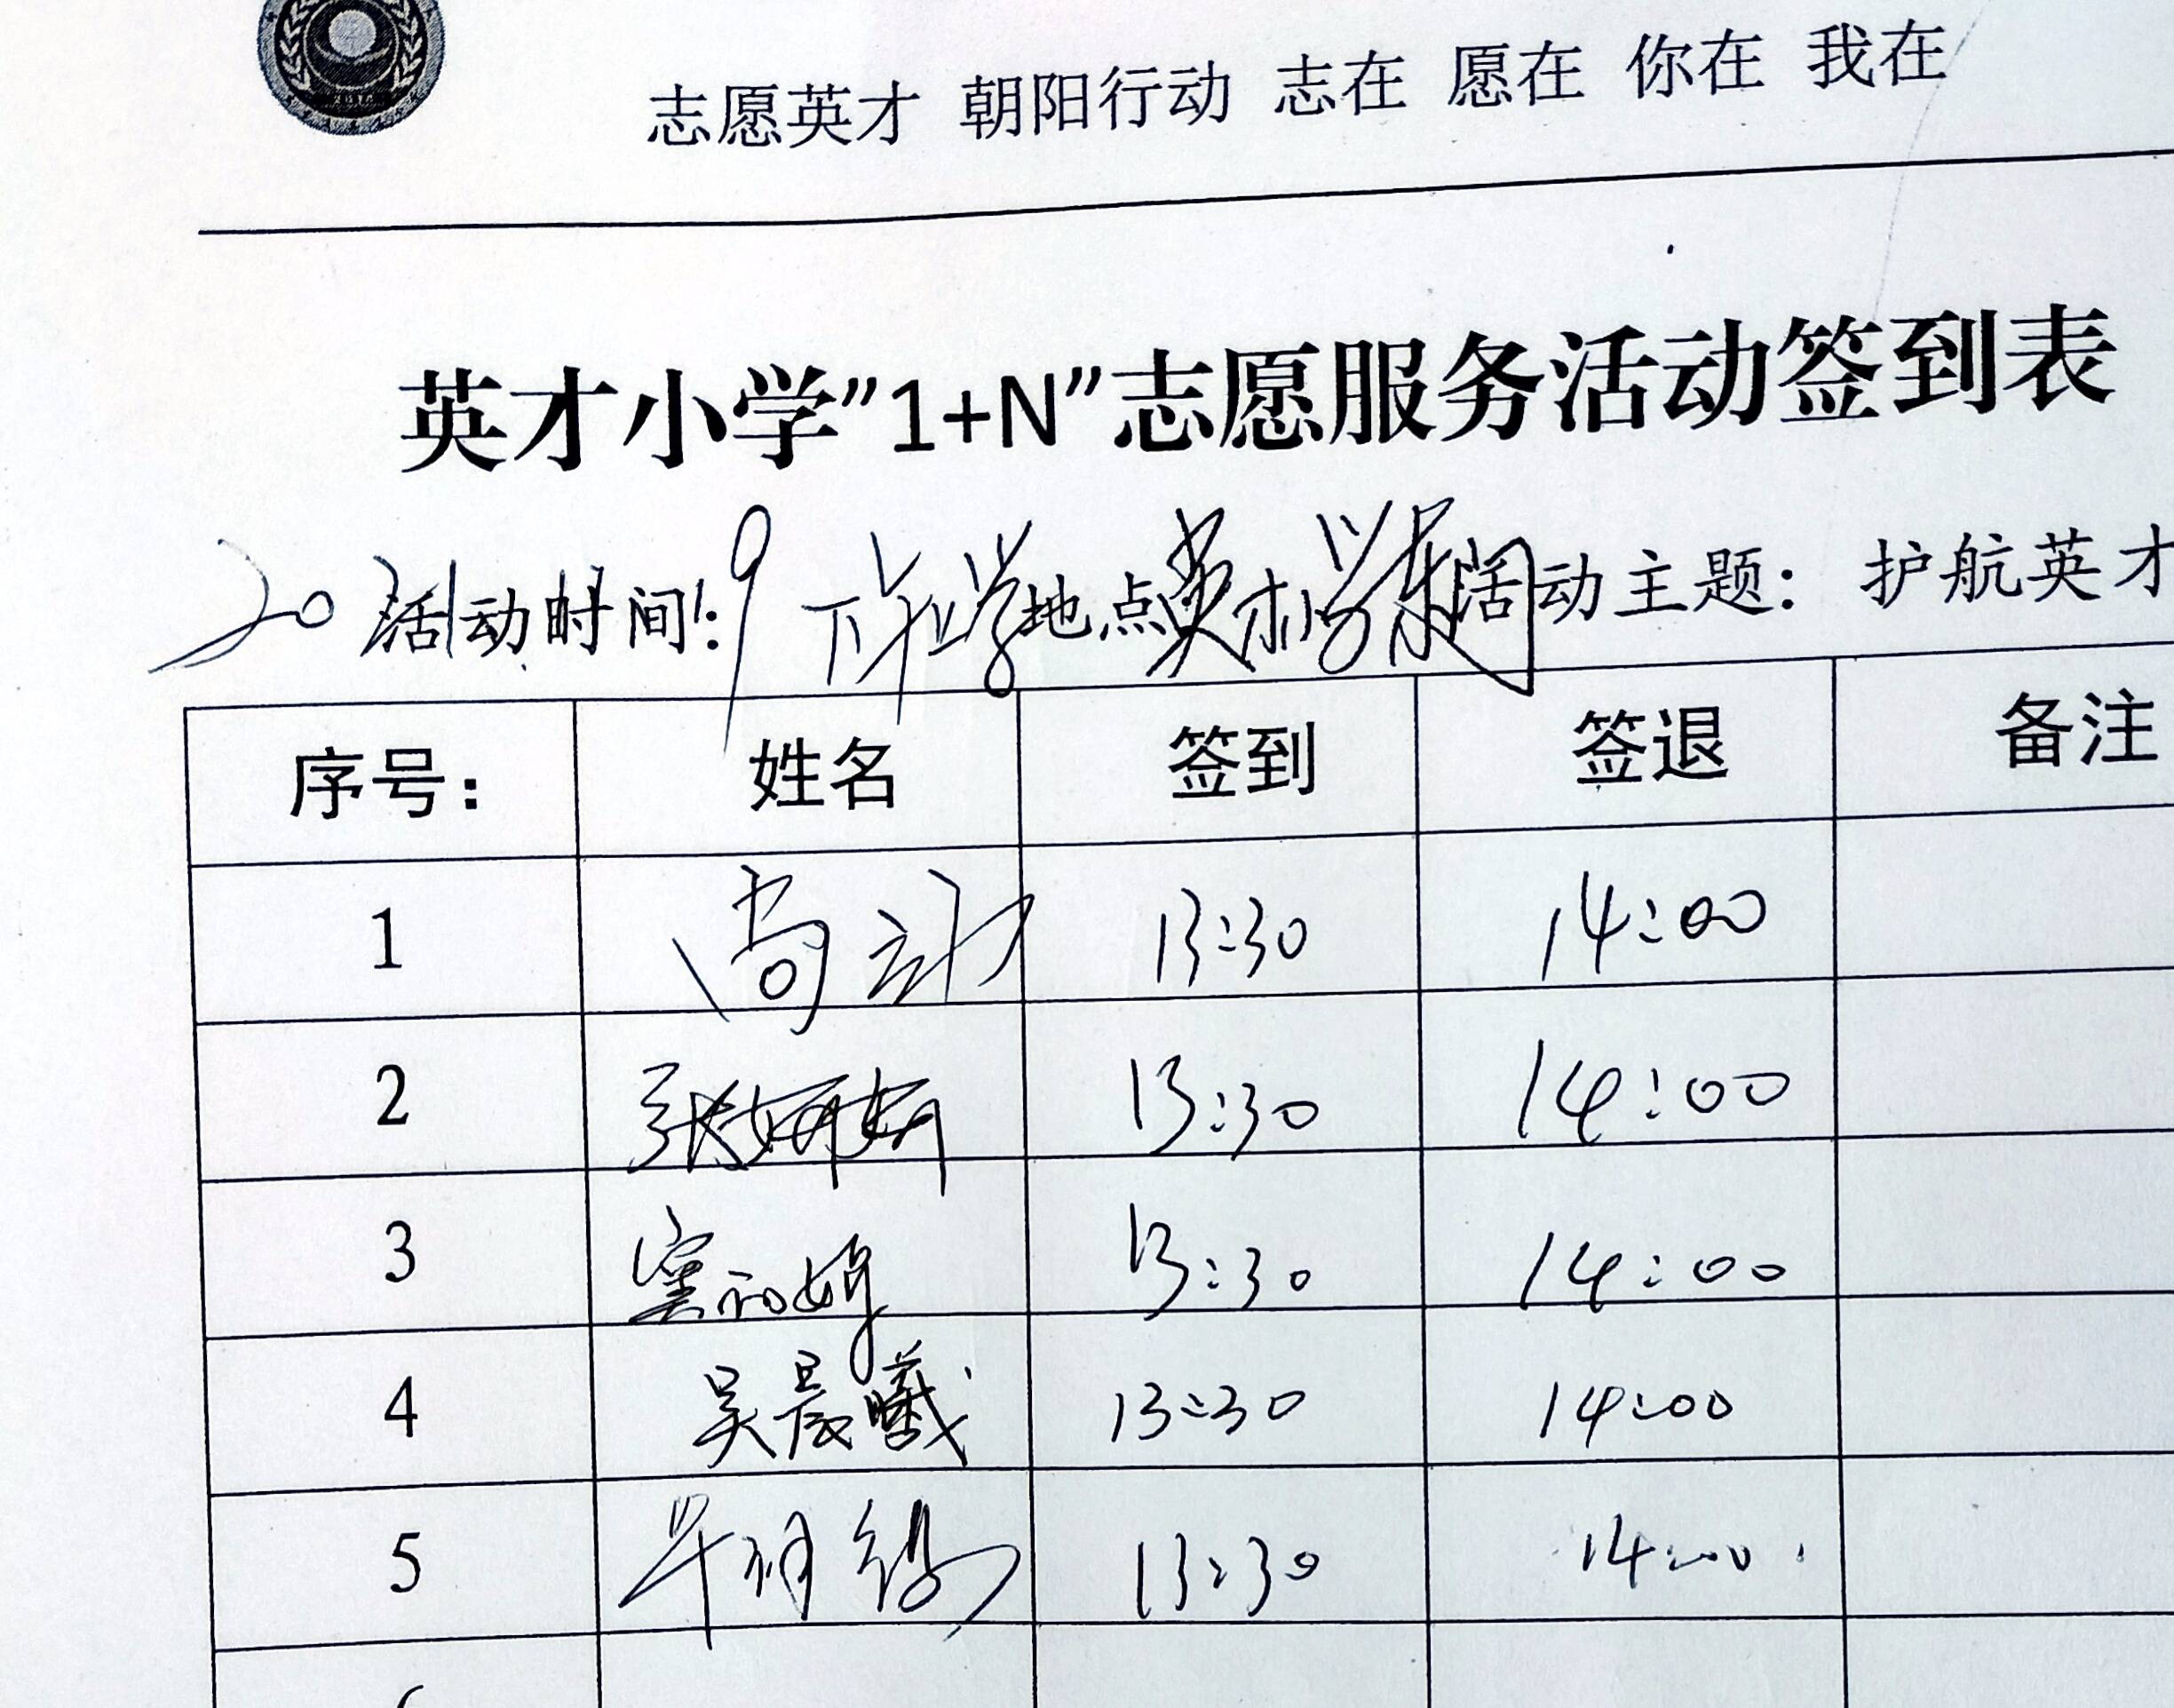 志愿英才 朝阳行动 志在 愿在 你在 我在
英才小学”1+N”志愿服务活动签到表
活动时间: 9 下午 地点 英才小学东门 活动主题: 护航英才
序号: 姓名 签到 签退 备注
1 13:30 14:00
2 张妍妍 13:30 14:00
3 13:30 14:00
4 吴晨曦 13:30 14:00
5 13:30 14:00